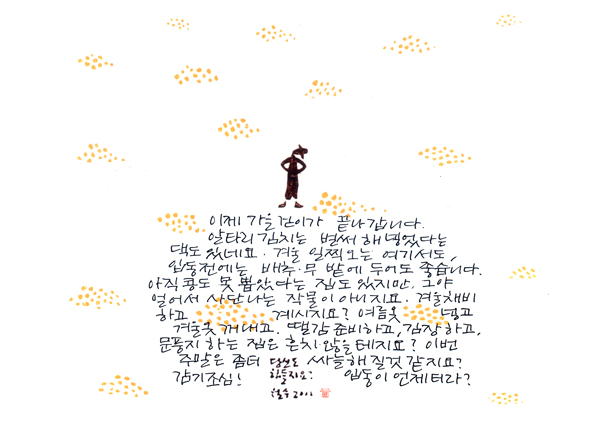 이제 가을걷이가 끝나갑니다.
알타리김치는 벌써 해 넣었다는
댁도 있네요. 겨울 일찍 오는 여기서도,
입동전에는 배추·무 밭에 두어도 좋습니다.
아직 콩도 못 뽑았다는 집도 있지만, 그야
얼어서 사단나는 작물이 아니지요. 겨울채비
하고 계시지요? 여름옷 넣고
겨울옷 꺼내고, 땔감 준비하고, 김장하고,
문풍지 하는 집은 흔치 않을테지요? 이번
주말은 좀더 싸늘해질것 같지요?
감기조심! 입동이 언제더라?
당신도
힘들지요?
철수 2011